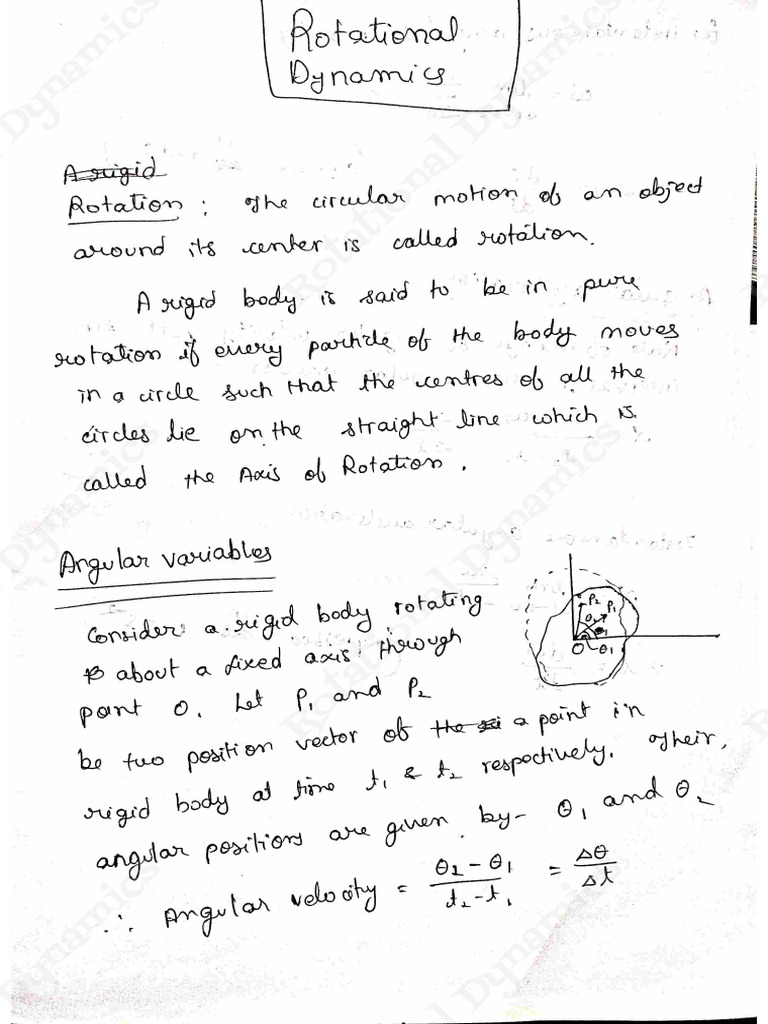 Rotational
Dynamics
A rigid
Rotation : The circular motion of an object
around its center is called rotation.
A rigid body is said to be in pure
rotation if every particle of the body moves
in a circle such that the centres of all the
circles lie on the straight line which is
called the Axis of Rotation.
Angular variables
P2
P1
θ2
O
θ1
Consider a rigid body rotating
about a fixed axis through
point O. Let P1 and P2
be two position vector of the a point in
rigid body at time t1 & t2 respectively. Their,
angular positions are given by- θ1 and θ2
∴ Angular velocity = θ2 - θ1 / t2 - t1 = Δθ / Δt
Rotational Dynamics